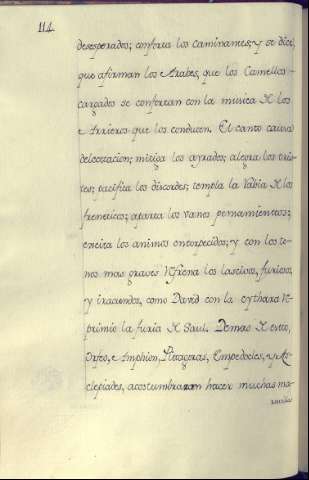 114.
desesperados; conforta los caminantes; y se dice,
que afirman los Arabes, que los Camellos
cargados se confortan con la musica de los
Arrieros que los conducen. El canto causa
delectacion; mitiga los ayrados; alegra los tris-
tes; pacifica los discordes; templa la rabia de los
freneticos; aparta los vanos pensamientos;
excita los animos entorpecidos; y con los to-
nos mas graves refrena los lascivos, furiosos,
y iracundos, como David con la cythara re-
primio la furia de Saul. Demas de esto,
Orfeo, e Amphion, Pitagoras, Empedocles, y As-
clepiades, acostumbraron hacer muchas ma-
ravillas